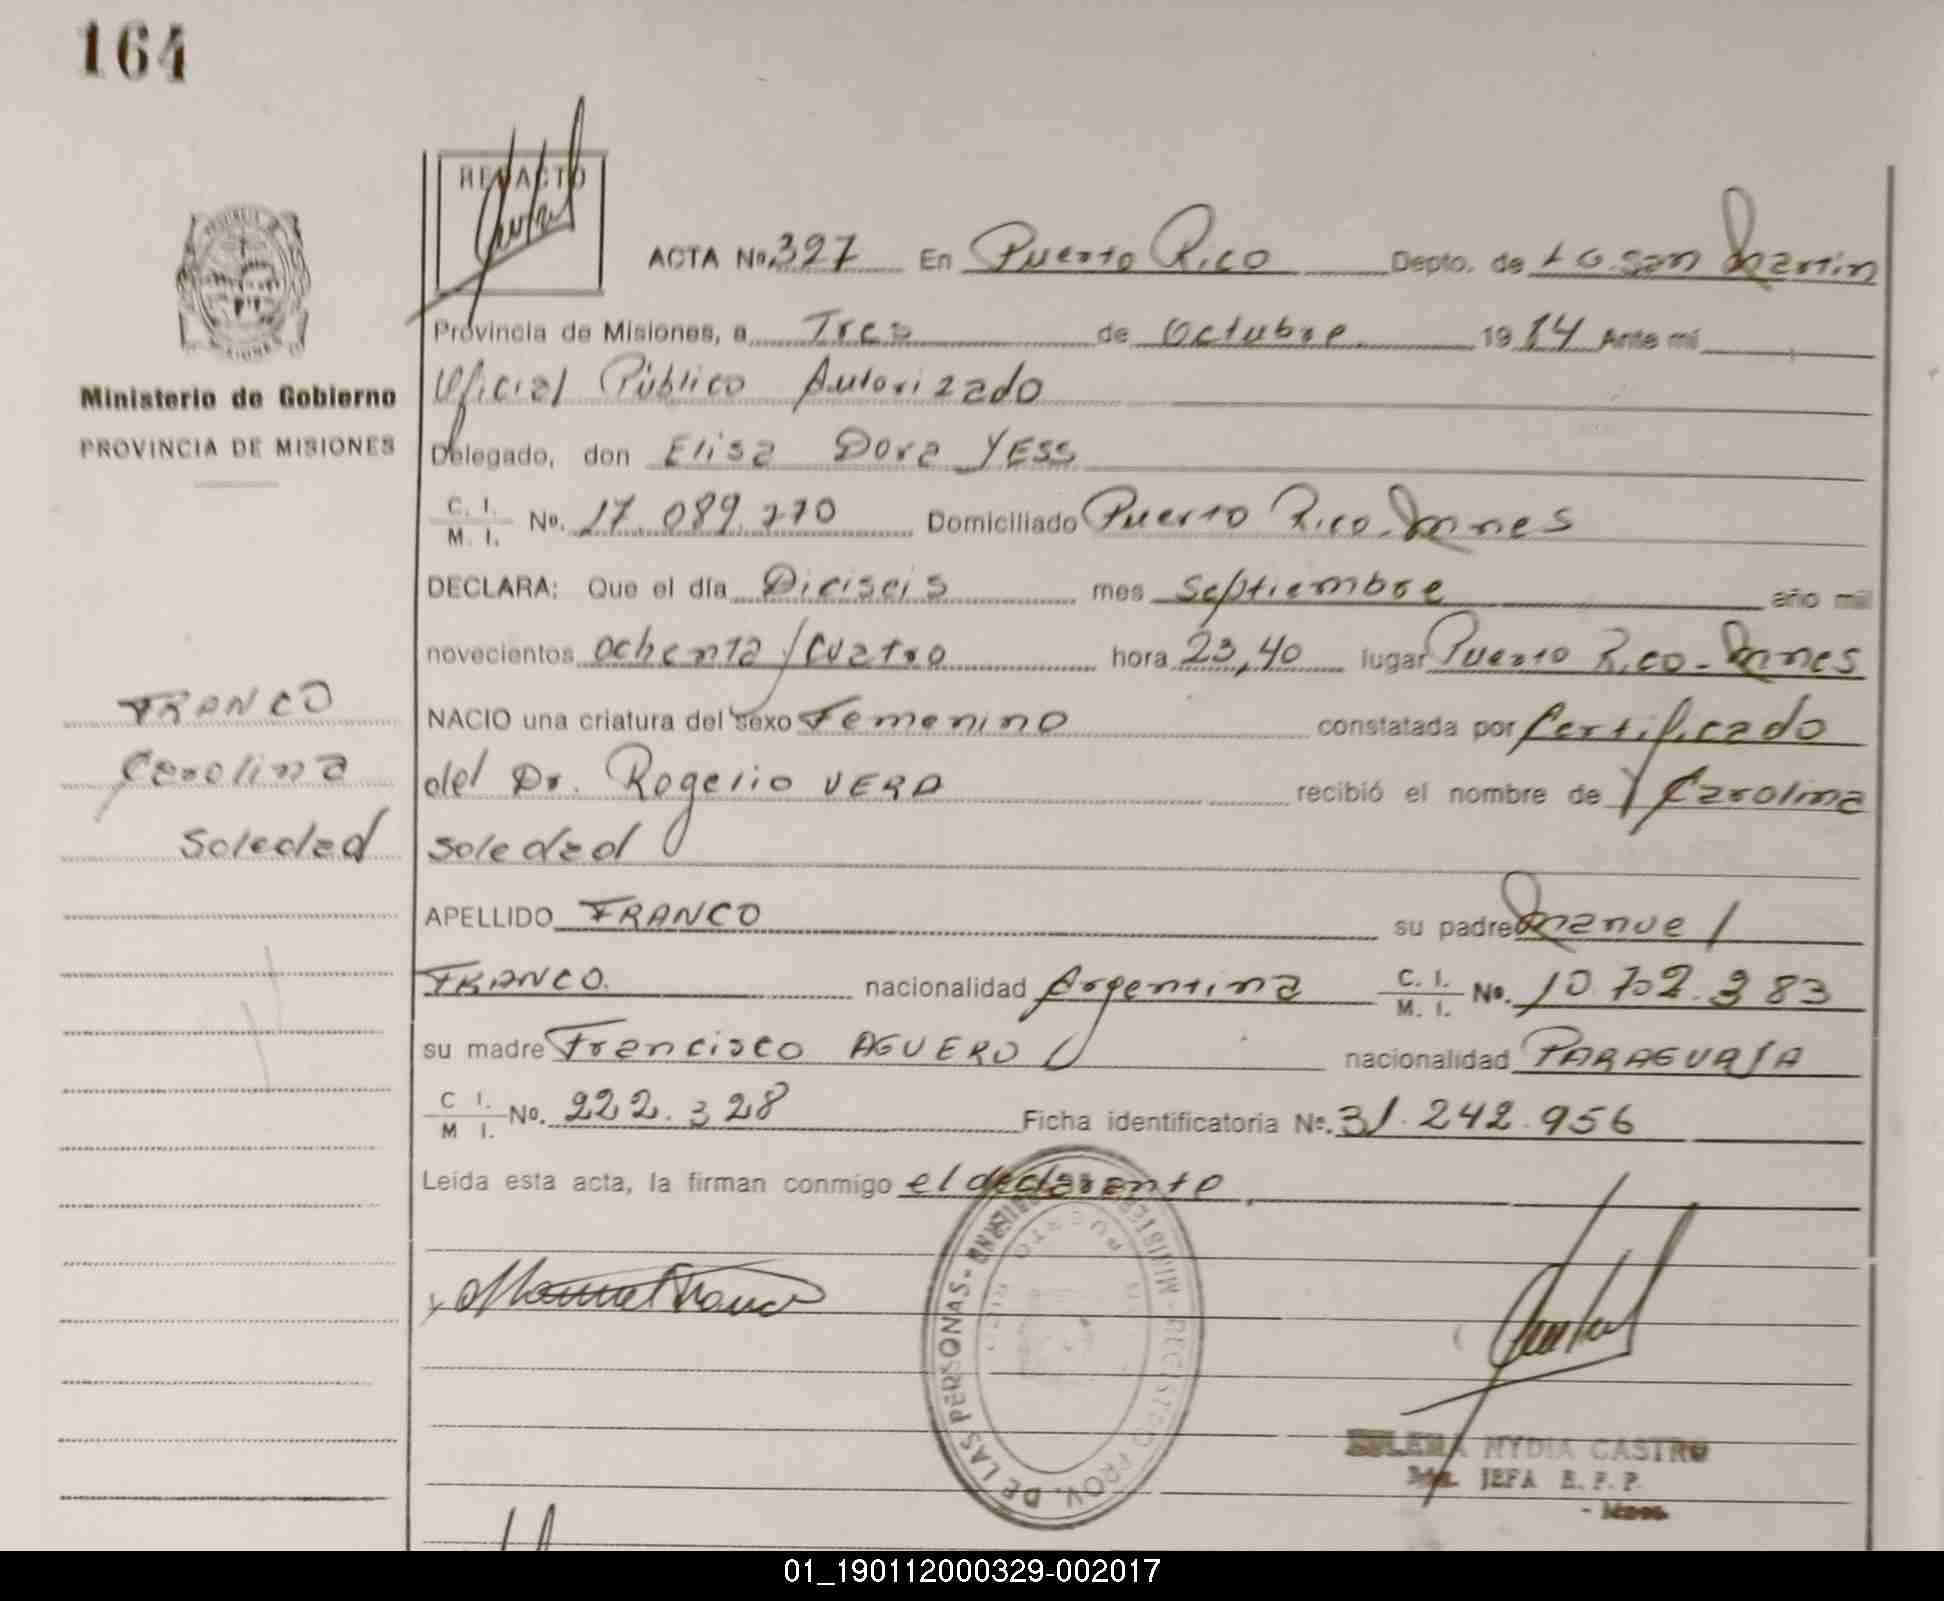 164
REDACTO
ACTA No. 327 En Puerto Rico Depto. de L G. San Martin
Provincia de Misiones, a Tres de Octubre 19 84 Ante mí
Oficial Público Autorizado
Ministerio de Gobierno
PROVINCIA DE MISIONES
Delegado, don Elisa Dora YESS
C. I. M. I. No. 17.089.770 Domiciliado Puerto Rico - Mnes
DECLARA: Que el día Diciseis mes Septiembre año mil
novecientos ochenta y cuatro hora 23,40 lugar Puerto Rico - Mnes
FRANCO
Carolina
Soledad
NACIO una criatura del sexo Femenino constatada por Certificado
del Dr. Rogelio VERA recibió el nombre de Carolina
Soledad
APELLIDO FRANCO su padre Manuel
FRANCO. nacionalidad Argentina C. I. M. I. No. 10.702.383
su madre Francisco AGUERO nacionalidad PARAGUAYA
C I. M I. No. 222.328 Ficha identificatoria No. 31.242.956
Leída esta acta, la firman conmigo el declarante
Manuel Franco
MINISTERIO - REGISTRO PROV. DE LAS PERSONAS -
PUERTO RICO
ZULEMA NYDIA CASTRO
JEFA R. P. P.
- Mnes.
01_190112000329-002017